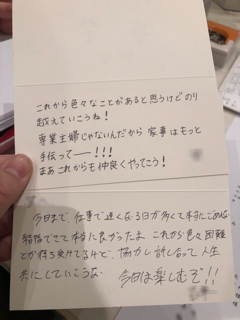 これから色々なことがあると思うけどのり
越えていこうね!
専業主婦じゃないんだから 家事はもっと
手伝ってー!!!
まあこれからも仲良くやってこう!
今日まで、仕事で遅くなる日が多くて本当にごめんな
結婚できて本当に良かったよ これから色々困難
とか待ち受けてるけど、協力し許し合って人生
共にしていこうな
今日は楽しむぞ!!